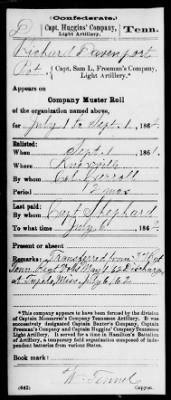 (Confederate.)
D Capt. Huggins' Company, Light Artillery. Tenn.
Richard Davenport
Pvt., Capt. Sam L. Freeman's Company, Light Artillery.*
Appears on
Company Muster Roll
of the organization named above,
for July 1 to Sept. 1, 186
Enlisted:
When Sept. 1, 1861.
Where Knoxville
By whom Col.
Period 12 mos
Last paid:
By whom Capt Shephard
To what time July 1, 186
Present or absent
Remarks: Transferred from Regt
Tenn. May 1, 62 Discharged
at Tupelo, Miss July 6, 62
*This company appears to have been formed of the division
of Captain Monsarrat's Company Tennessee Artillery. It was
successively designated Captain Baxter's Company, Captain
Freeman's Company and Captain Huggins' Company Tennessee
Light Artillery. It was for a time in Hamilton's Battalion, a
temporary field organization composed of independent
batteries.
Book mark:
(642)
Copyist.